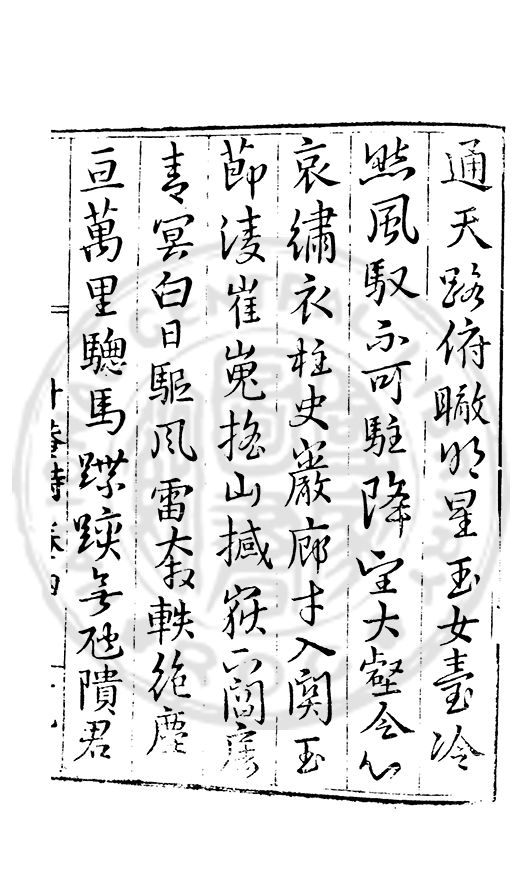 通天路俯瞰明星玉女臺冷
然風馭不可駐降望大壑令心
哀繡衣柱史巖廊才入關玉
節淩崔嵬搖山撼嶽下閶
青冥白日驅風雷奔軼絕塵
亘萬里驄馬蹀躞無虺隤君